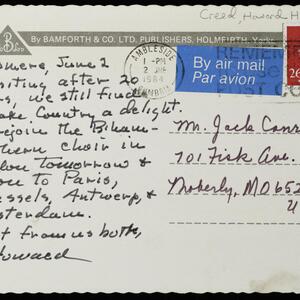 Creed, Howard H
By BAMFORTH & CO. LTD. PUBLISHERS, HOLMFIRTH, Yorks
Bo
AMBLESIDE
1 - PM
2 JNE
1984
CUMBRIA
By air mail
Par avion
REMEM
POST CO
26
mere, June 2
siting after 20
s, we still find
ake Country a delight.
rejoin the Birm-
thern choir in
don tomorrow &
on to Paris,
ssels, Antwerp, &
sterdam.
t from us both,
Howard
Mr. Jack Conr
701 Fisk Ave.
Moberly, MO 652
U